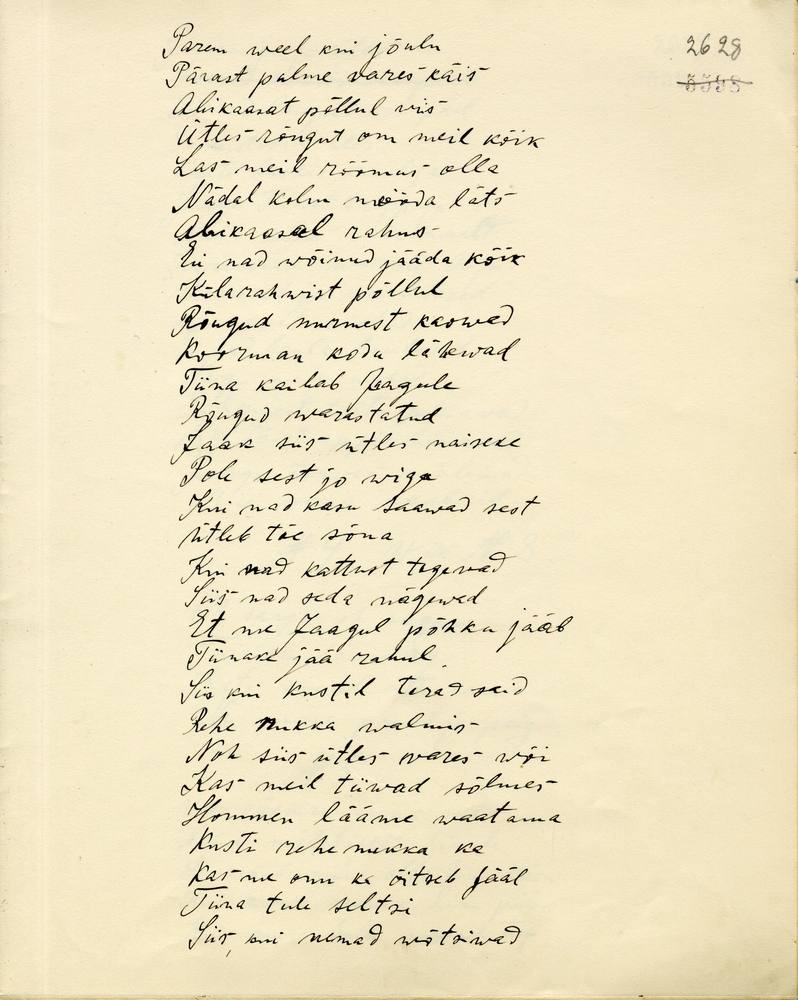 Parem weel kui jõulu
2628
Pärast palme vares käis
5598
Abikaasat põllul viis
Ütles rõugut om meil kõik
Las meil rõõmus olla
Nädal kolm mööda läts
Abikaasal rahus
Ei nad wõinud jääda kõik
Külarahwist põllul
Rõugud nurmest kaowad
Koorman kodu läHewad
Tiina kaibab Jaagule
Rõugud warastatud
Jaak siis ütles naiseke
Pole sest jo wiga
Kui nad kasu saawad sest
ütleb tõe sõna
Kui nad kattust tegewad
Siis nad seda nägewad
Et me Jaagul põhku jääb
Tiinake jää rahul.
Siis kui Kustil terad said
Rehe nukka walmis
Noh siis ütles vares wõi
Kas meil tüwad sõlmes
Hommen lääme waatama
Kusti rehe nukka ka
Kas me onu ka õitseb jääl
Tiina tule seltsi
Siis, kui nemad wõtsiwad